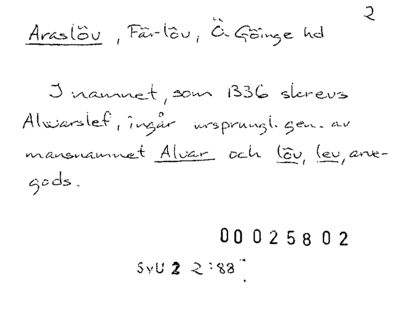 2
Araslöv, Färlöv, Ö Göinge hd
I namnet, som 1336 skrevs
Alwarslef, ingår ursprungl. gen. av
mansnamnet Alvar och löv, lev, arve-
gods.
00025802
SvU 2 2:88